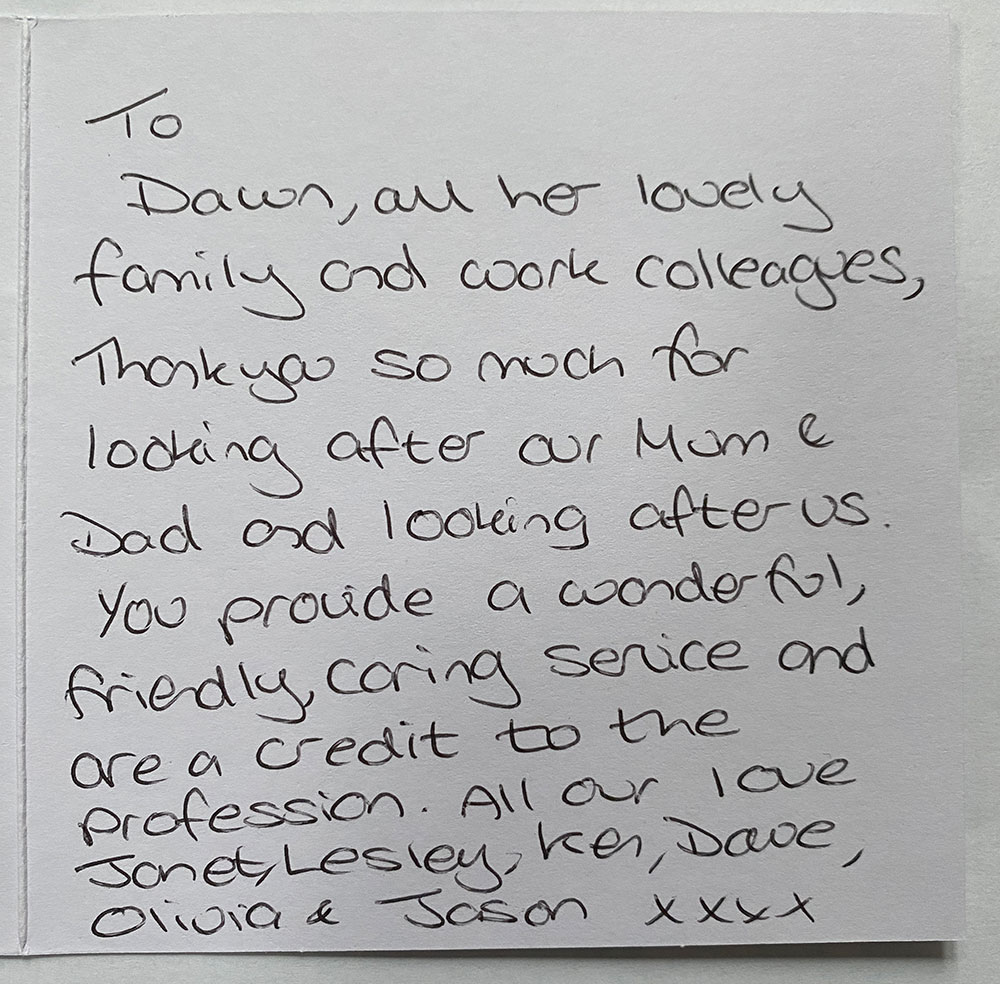 To
Dawn, all her lovely
family and work colleagues,
Thankyou so much for
looking after our Mum &
Dad and looking after us.
You provide a wonderful,
friendly, caring service and
are a credit to the
profession. All our love
Janet, Lesley, Ken, Dave,
Olivia & Jason xxxx